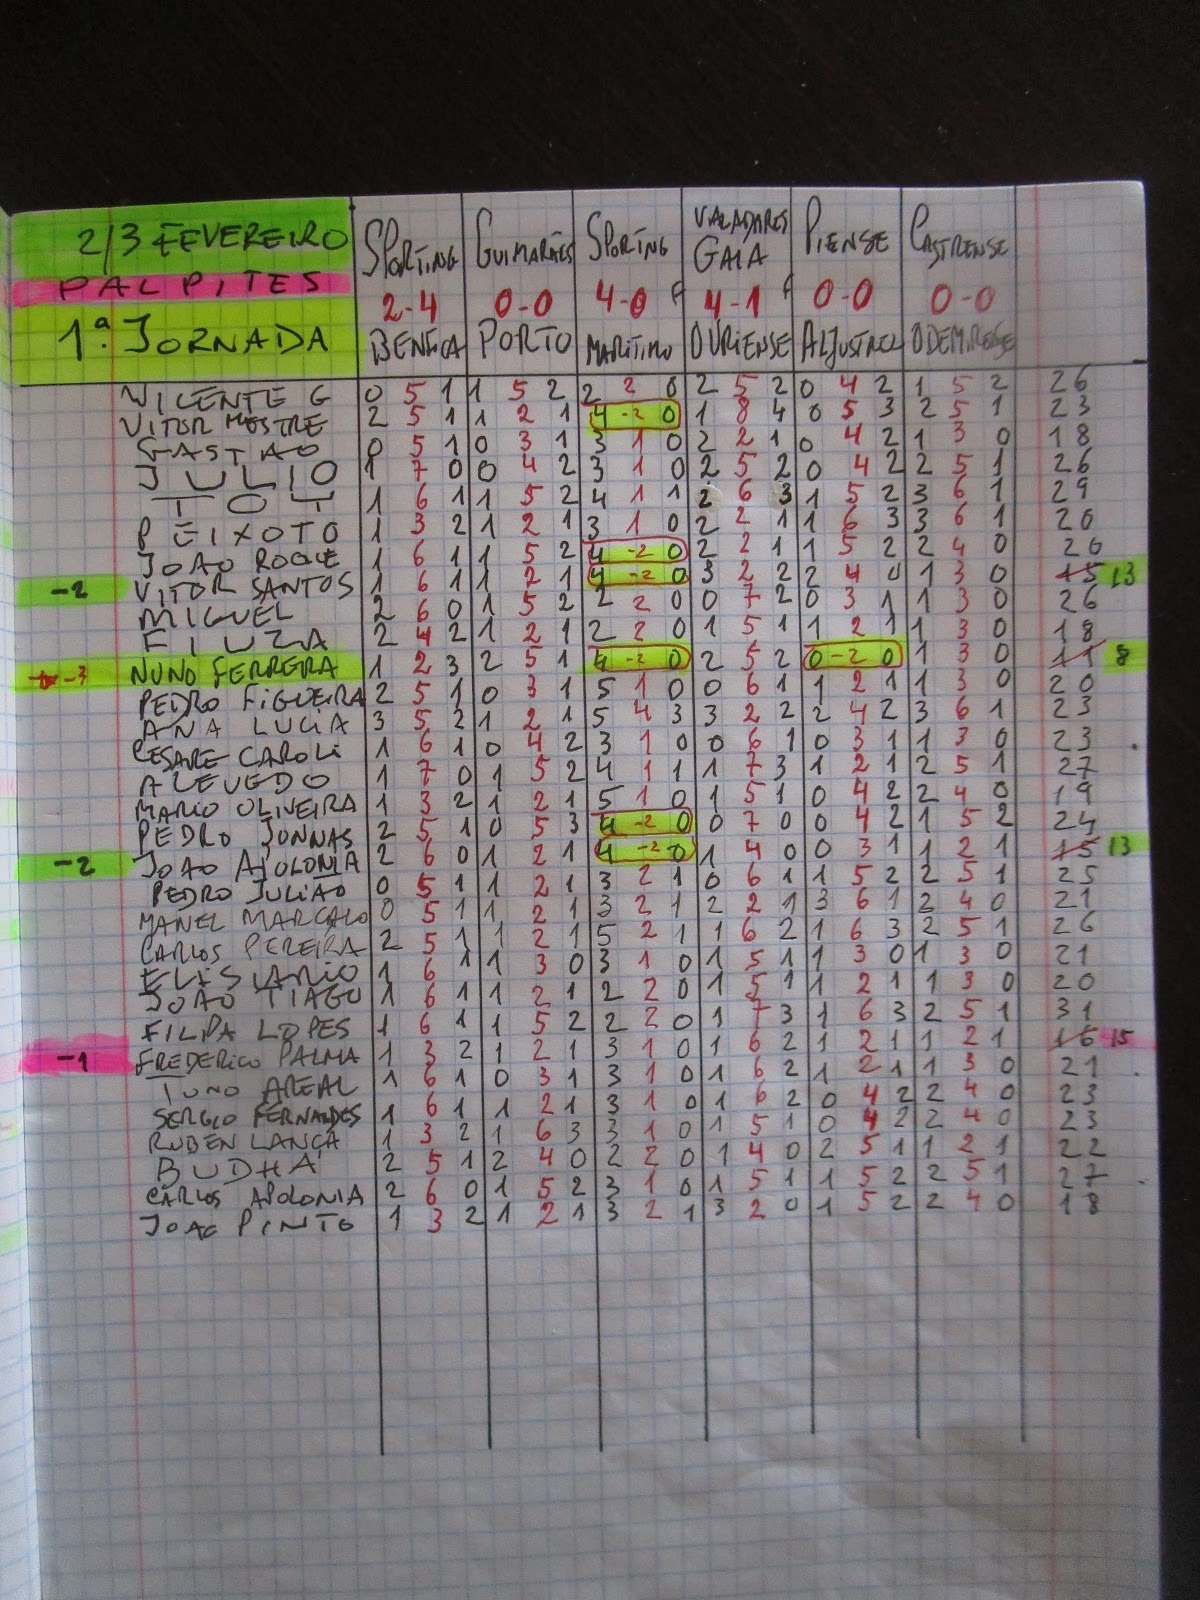 2/3 FEVEREIRO
PALPITES
1ª JORNADA
SPORTING GUIMARÃES SPORTING VALADARES GAIA PIENSE CASTRENSE
2-4 0-0 4-0 F 4-1 F 0-0 0-0
BENFICA PORTO MARITIMO OURIENSE ALJUSTREL ODEMIRENSE
VICENTE G 0 5 1 1 5 2 2 2 0 2 5 2 0 4 2 1 5 2 26
VITOR MESTRE 2 5 1 1 2 1 4 -2 0 1 8 4 0 5 3 2 5 1 23
GASTÃO 0 5 1 0 3 1 3 1 0 2 2 1 0 4 2 1 3 0 18
JULIO 1 7 0 0 4 2 3 1 0 2 5 2 0 4 2 2 5 1 26
TOY 1 6 1 1 5 2 4 1 1 2 6 3 1 5 2 3 6 1 29
PEIXOTO 1 3 2 1 2 1 3 1 0 2 2 1 1 6 3 3 6 1 20
JOAO ROQUE 1 6 1 1 5 2 4 -2 0 2 2 1 1 5 2 2 4 0 20
-2 VITOR SANTOS 1 6 1 1 2 1 4 -2 0 3 2 2 2 4 0 1 3 0 15 13
MIGUEL 2 6 0 1 5 2 2 2 0 0 7 2 0 3 1 1 3 0 26
FIUZA 2 4 2 1 2 1 2 2 0 1 5 1 1 2 1 1 3 0 18
-3 NUNO FERREIRA 1 2 3 2 5 1 4 -2 0 2 5 2 0 -2 0 1 3 0 11 8
PEDRO FIGUEIRA 2 5 1 0 3 1 5 1 0 0 6 1 1 2 1 1 3 0 20
ANA LUCIA 3 5 2 1 2 1 5 4 3 3 2 2 2 4 2 3 6 1 23
CESARE CAROLI 1 6 1 0 4 2 3 1 0 0 6 1 0 3 1 1 3 0 23
ALEVEDO 1 7 0 1 5 2 4 1 1 1 7 3 1 2 1 2 5 1 27
MARIO OLIVEIRA 1 3 2 1 2 1 5 1 0 1 5 1 0 4 2 2 4 0 19
PEDRO JONNAS 2 5 1 0 5 3 4 -2 0 0 7 0 0 4 2 1 5 2 24
-2 JOAO APOLONIA 2 6 0 1 2 1 4 -2 0 1 4 0 0 3 1 1 2 1 15 13
PEDRO JULIAO 0 5 1 1 2 1 3 2 1 0 6 1 1 5 2 2 5 1 25
MANEL MARCALO 0 5 1 1 2 1 3 2 1 2 2 1 3 6 1 2 4 0 21
CARLOS PEREIRA 2 5 1 1 2 1 5 2 1 1 6 2 1 6 3 2 5 1 26
ELISIARIO 1 6 1 1 3 0 3 1 0 1 5 1 1 3 0 1 3 0 21
JOAO TIAGO 1 6 1 1 2 1 2 2 0 1 5 1 1 2 1 1 3 0 20
FILIPA LOPES 1 6 1 1 5 2 2 2 0 1 7 3 1 6 3 2 5 1 31
-1 FREDERICO PALMA 1 3 2 1 2 1 3 1 0 1 6 2 1 2 1 1 2 1 16 15
TUNO AREAL 1 6 1 0 3 1 3 1 0 1 6 2 1 2 1 1 3 0 21
SERGIO FERNANDES 1 6 1 1 2 1 3 1 0 1 6 2 0 4 2 2 4 0 23
RUBEN LANÇA 1 3 2 1 6 3 3 1 0 1 5 1 0 4 2 2 4 0 23
BUDHA 2 5 1 2 4 0 2 2 0 1 4 0 2 5 1 1 2 1 22
CARLOS APOLONIA 2 6 0 1 5 2 3 1 0 1 5 1 1 5 2 2 5 1 27
JOAO PINTO 1 3 2 1 2 1 3 2 1 3 2 0 1 5 2 2 4 0 18